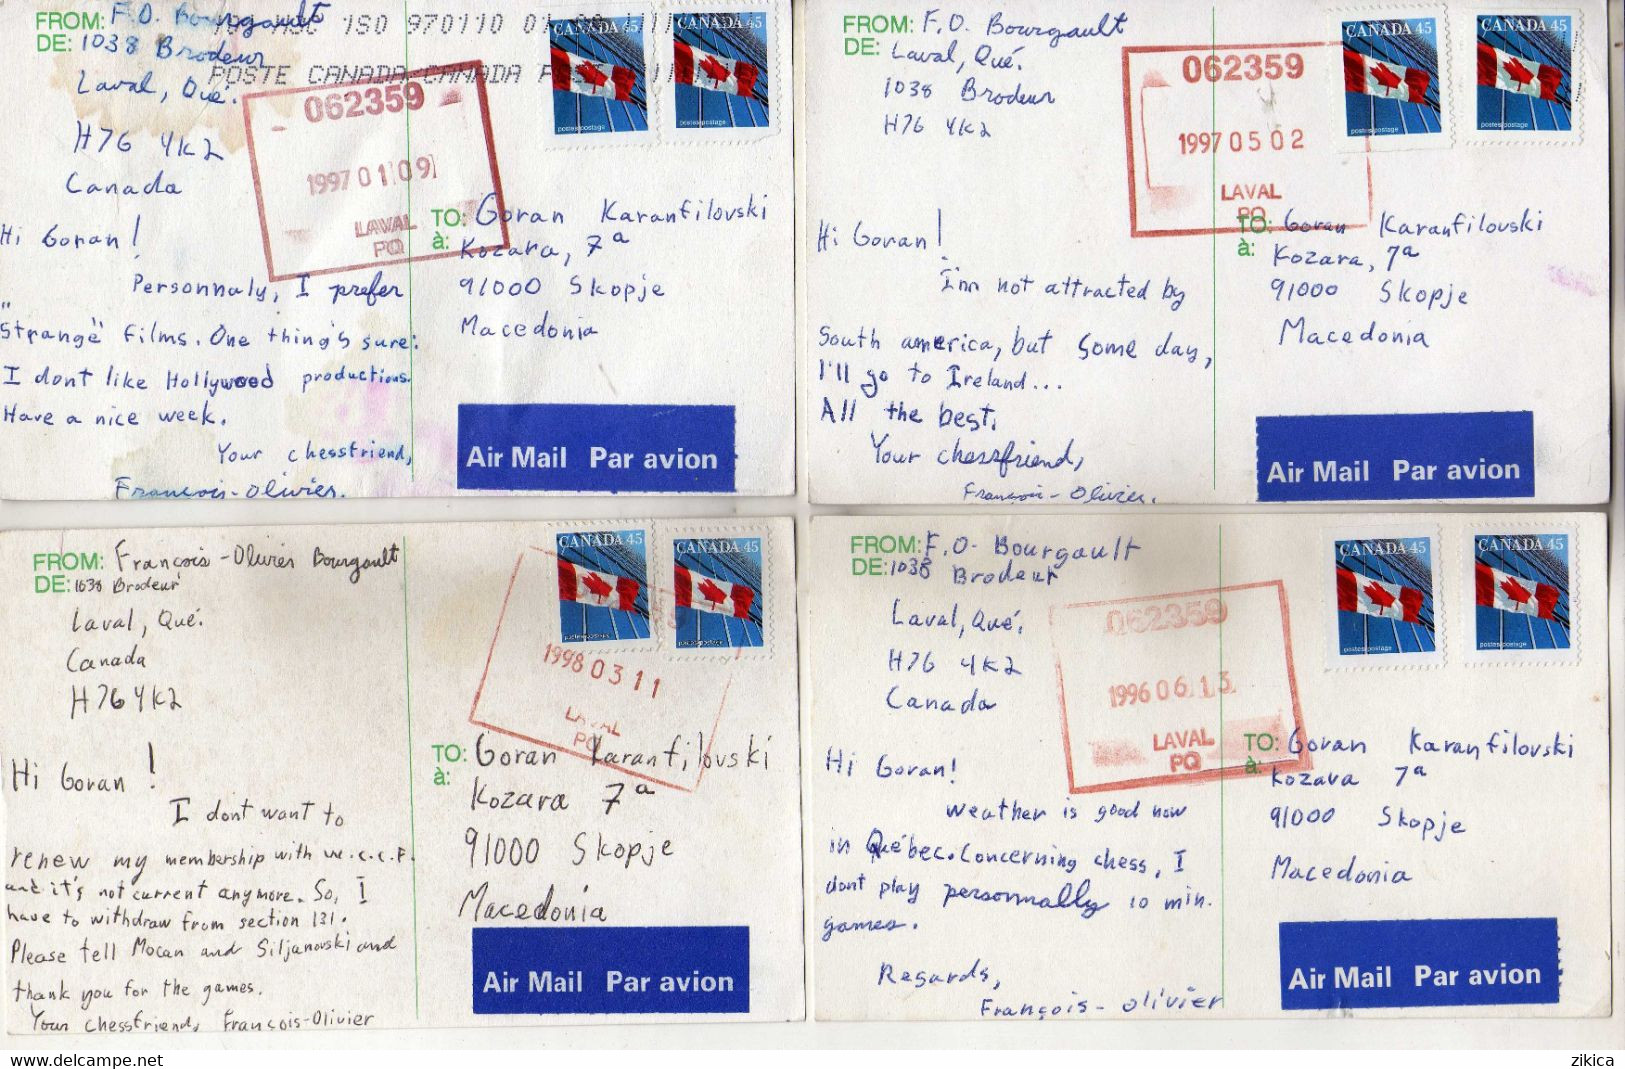 FROM: F.O. Bourgault
DE: 1038 Brodeur
Laval, Qué.
H7G 4K2
Canada
ISO 970110
POSTE CANADA CANADA POST
CANADA 45
CANADA 45
postes/postage
postes/postage
062359
1997 01 09
LAVAL
PQ
TO: Goran Karanfilovski
à: Kozara, 7a
91000 Skopje
Macedonia
Hi Goran!
Personnaly, I prefer
"Strange" films. One thing's sure:
I dont like Hollywood productions.
Have a nice week.
Your chessfriend,
François-Olivier.
Air Mail Par avion
FROM: F.O. Bourgault
DE: Laval, Qué.
1038 Brodeur
H7G 4K2
CANADA 45
CANADA 45
postes/postage
postes/postage
062359
1997 05 02
LAVAL
PQ
TO: Goran Karanfilovski
à: Kozara, 7a
91000 Skopje
Macedonia
Hi Goran!
I'm not attracted by
South america, but some day,
I'll go to Ireland...
All the best.
Your chessfriend,
François-Olivier.
Air Mail Par avion
FROM: François-Olivier Bourgault
DE: 1038 Brodeur
Laval, Qué.
Canada
H7G 4K2
CANADA 45
CANADA 45
postes/postage
postes/postage
1998 03 11
LAVAL
PQ
TO: Goran Karanfilovski
à: Kozara 7a
91000 Skopje
Macedonia
Hi Goran!
I dont want to
renew my membership with w.c.c.f.
and it's not current anymore. So, I
have to withdraw from section 131.
Please tell Mocan and Siljanovski and
thank you for the games.
Your chessfriend, François-Olivier
Air Mail Par avion
FROM: F.O. Bourgault
DE: 1038 Brodeur
Laval, Qué.
H7G 4K2
Canada
CANADA 45
CANADA 45
postes/postage
postes/postage
062359
1996 06 13
LAVAL
PQ
TO: Goran Karanfilovski
à: Kozara 7a
91000 Skopje
Macedonia
Hi Goran!
Weather is good now
in Québec. Concerning chess, I
dont play personnally 10 min.
games.
Regards,
François-Olivier
Air Mail Par avion
delcampe.net
zikica